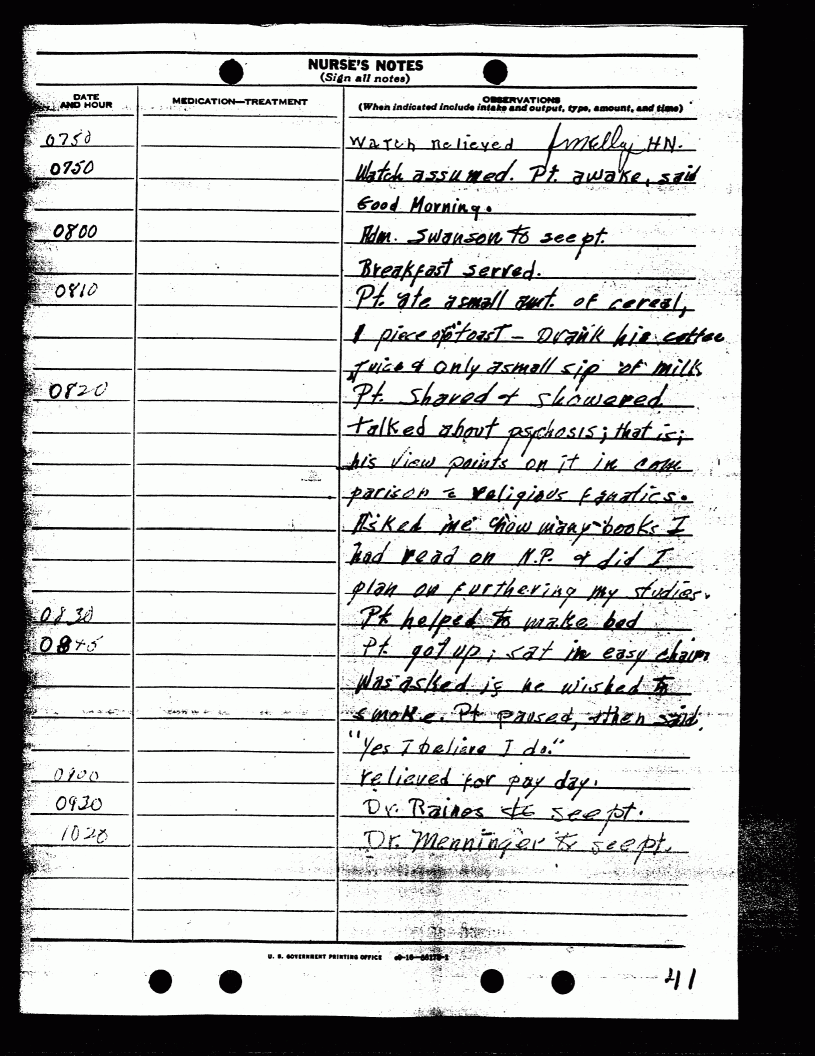 NURSE'S NOTES
(Sign all notes)
DATE AND HOUR
MEDICATION—TREATMENT
OBSERVATIONS
(When indicated include intake and output, type, amount, and time)
0750 Watch relieved HN.
0750 Watch assumed. Pt. awake, said
Good Morning.
0800 Adm. Swanson to see pt.
Breakfast served.
0810 Pt. ate a small amt. of cereal,
1 piece of toast – Drank his coffee
juice & only a small sip of milk
0820 Pt. Shaved & showered.
talked about psychosis; that is;
his view points on it in com
parison c̄ religious fanatics.
Asked me how many books I
had read on N.P. & did I
plan on furthering my studies.
0830 Pt helped to make bed
0845 Pt. got up; sat in easy chair
Was asked is he wished to
smoke. Pt paused, then said,
"Yes I believe I do."
0900 relieved for pay day.
0930 Dr. Raines to see pt.
1020 Dr. Menninger to see pt.
U. S. GOVERNMENT PRINTING OFFICE
41